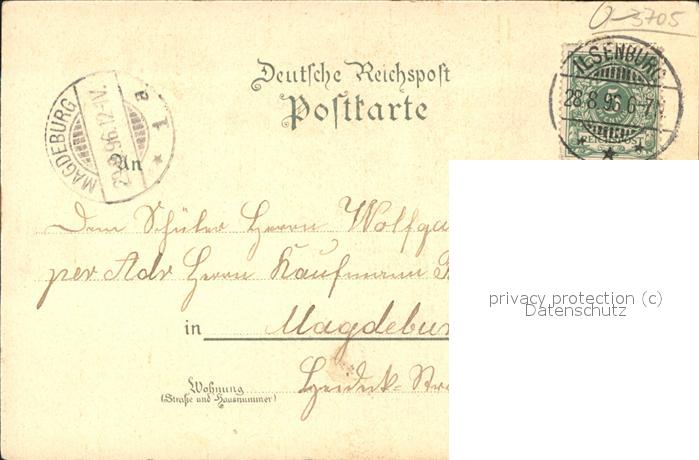 O-3705
Deutsche Reichspost
Postkarte
ILSENBURG
28.8.96.6-7
5
REICHSPOST
MAGDEBURG
96.12-
1 a
An
Dem Schüler Herrn Wolfga
per Adr Herrn Kaufmann
in Magdebur
Wohnung
(Straße und Hausnummer)
privacy protection (c)
Datenschutz